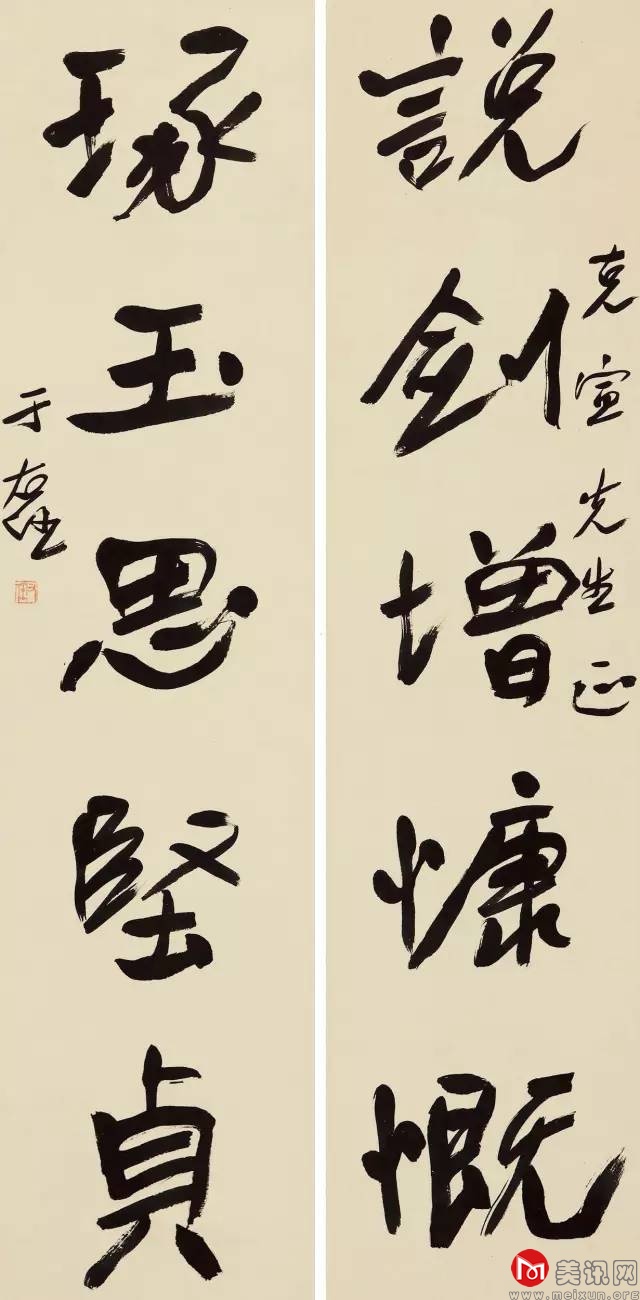 克宣先生正
說劍增慷慨
琢玉思堅貞
于右任
美讯网
www.meixun.org